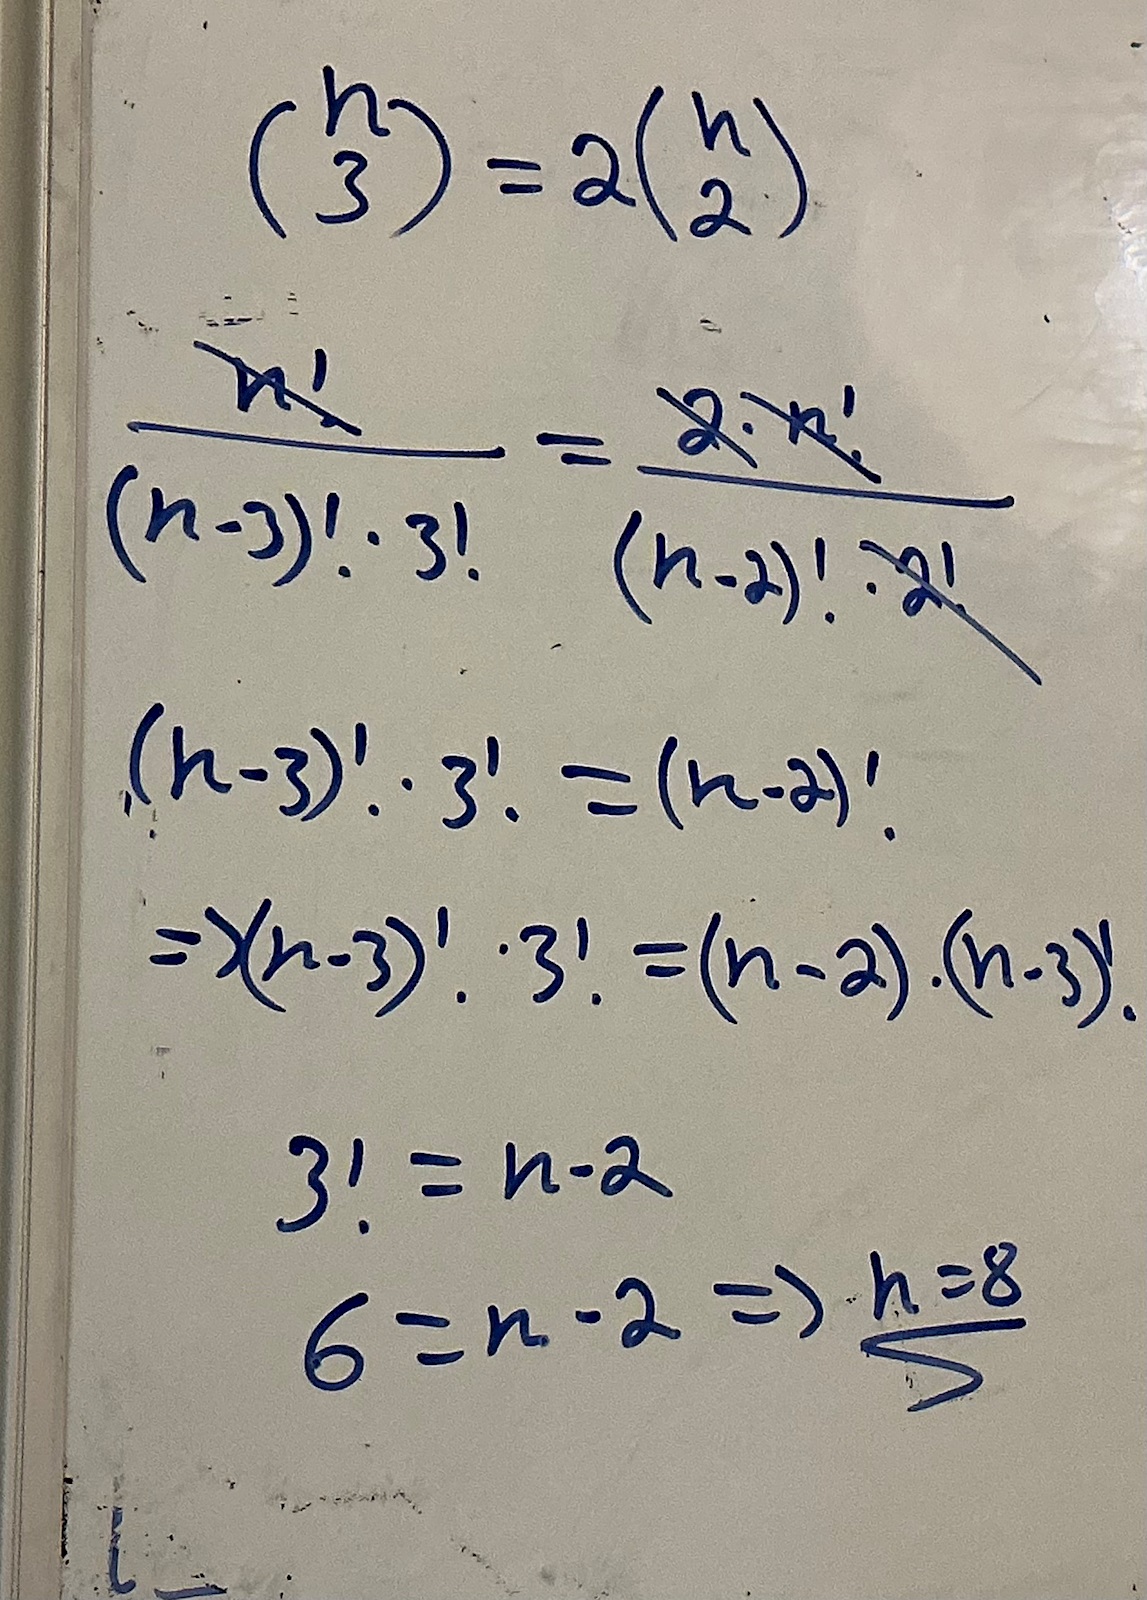 (n 3) = 2(n 2)
n! / (n-3)! · 3! = 2 · n! / (n-2)! · 2!
(n-3)! · 3! = (n-2)!
=> (n-3)! · 3! = (n-2) · (n-3)!
3! = n-2
6 = n-2 => n=8